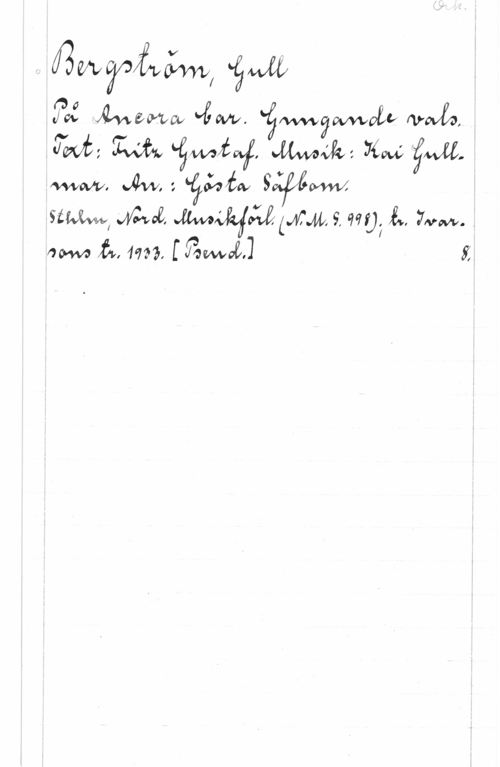 Ork.
Bergström, Gull
På Ancora bar. Gungande vals.
Text: Fritz Gustaf. Musik: Kai Gull-
mar. Arr.: Gösta Säfbom.
Sthlm, Nord. Musikförl. (N.M.S. 998); tr. Ivar-
sons tr. 1933. [Pseud.] 8.